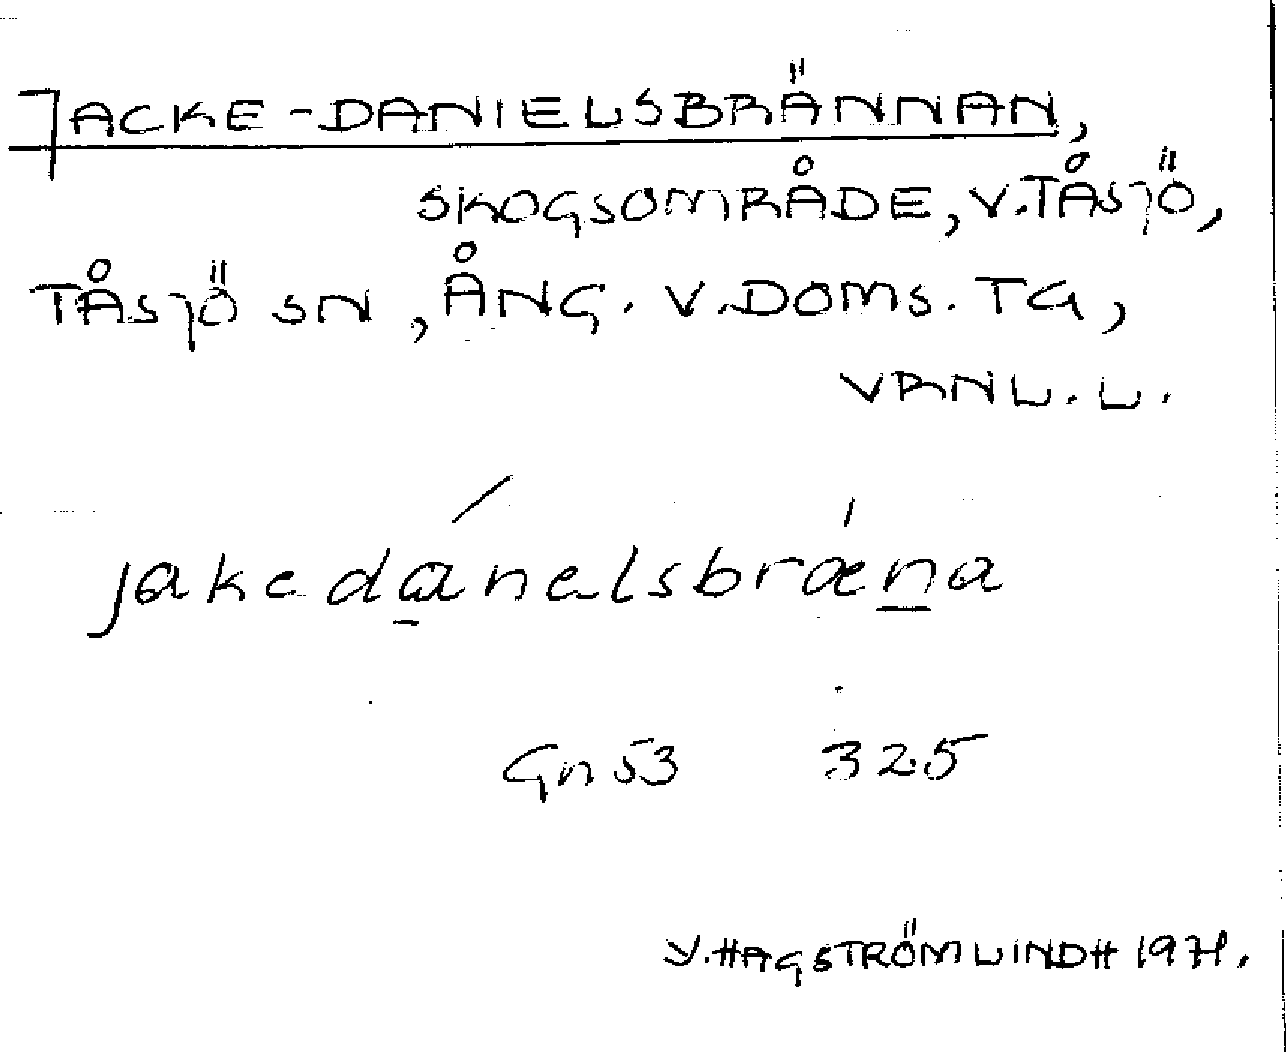 JACKE-DANIELSBRÄNNAN,
SKOGSOMRÅDE, V.TÅSJÖ,
TÅSJÖ SN, ÅNG. V.DOMS. TG,
VRNL. L.
jakedánelsbrǽna
Gn 53 325
Y. HAGSTRÖM LINDH 1971.